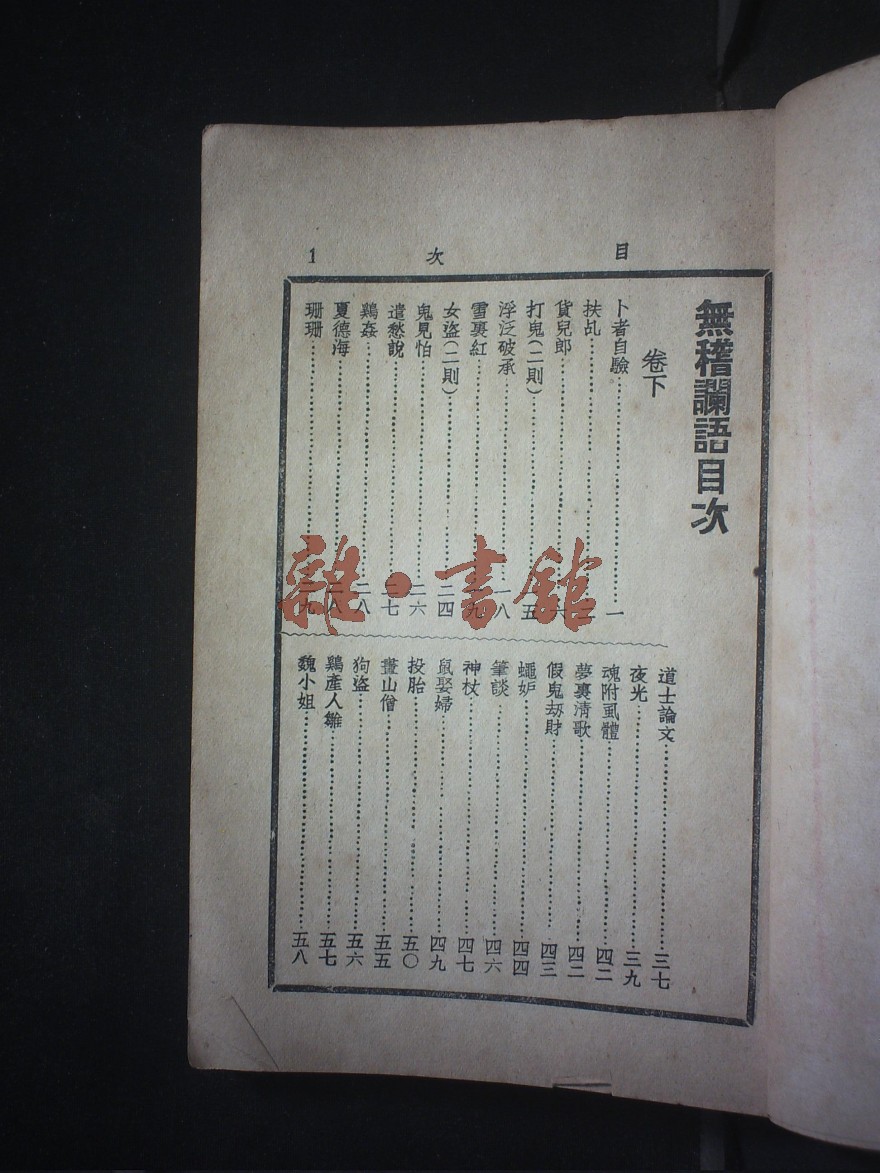 目次 1
無稽讕語目次
卷下
卜者自驗……一
扶乩……
貨兒郎……六
打鬼(二則)……五
浮泛破承……一八
雪裏紅……
女盜(二則)……二四
鬼見怕……二六
遣愁說……二七
鷄姦……二八
夏德海……二八
珊珊……二九
道士論文……三七
夜光……三九
魂附虱體……四二
夢裏淸歌……四二
假鬼刧財……四三
蠅妒……四四
筆談……四六
神杖……四七
鼠娶婦……四九
投胎……五〇
畫山僧……五五
狗盜……五六
鷄產人雛……五七
魏小姐……五八
雜·書館